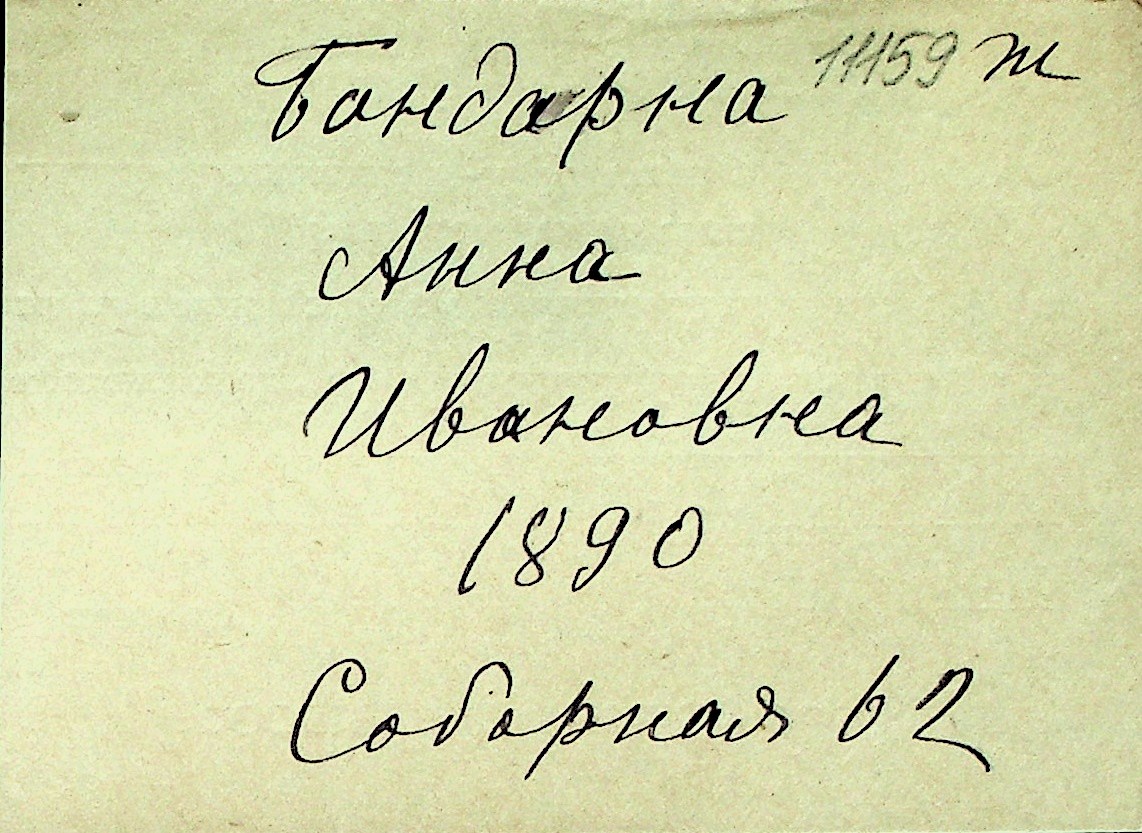 Бондарна 11159 ж
Анна
Ивановна
1890
Соборная 62